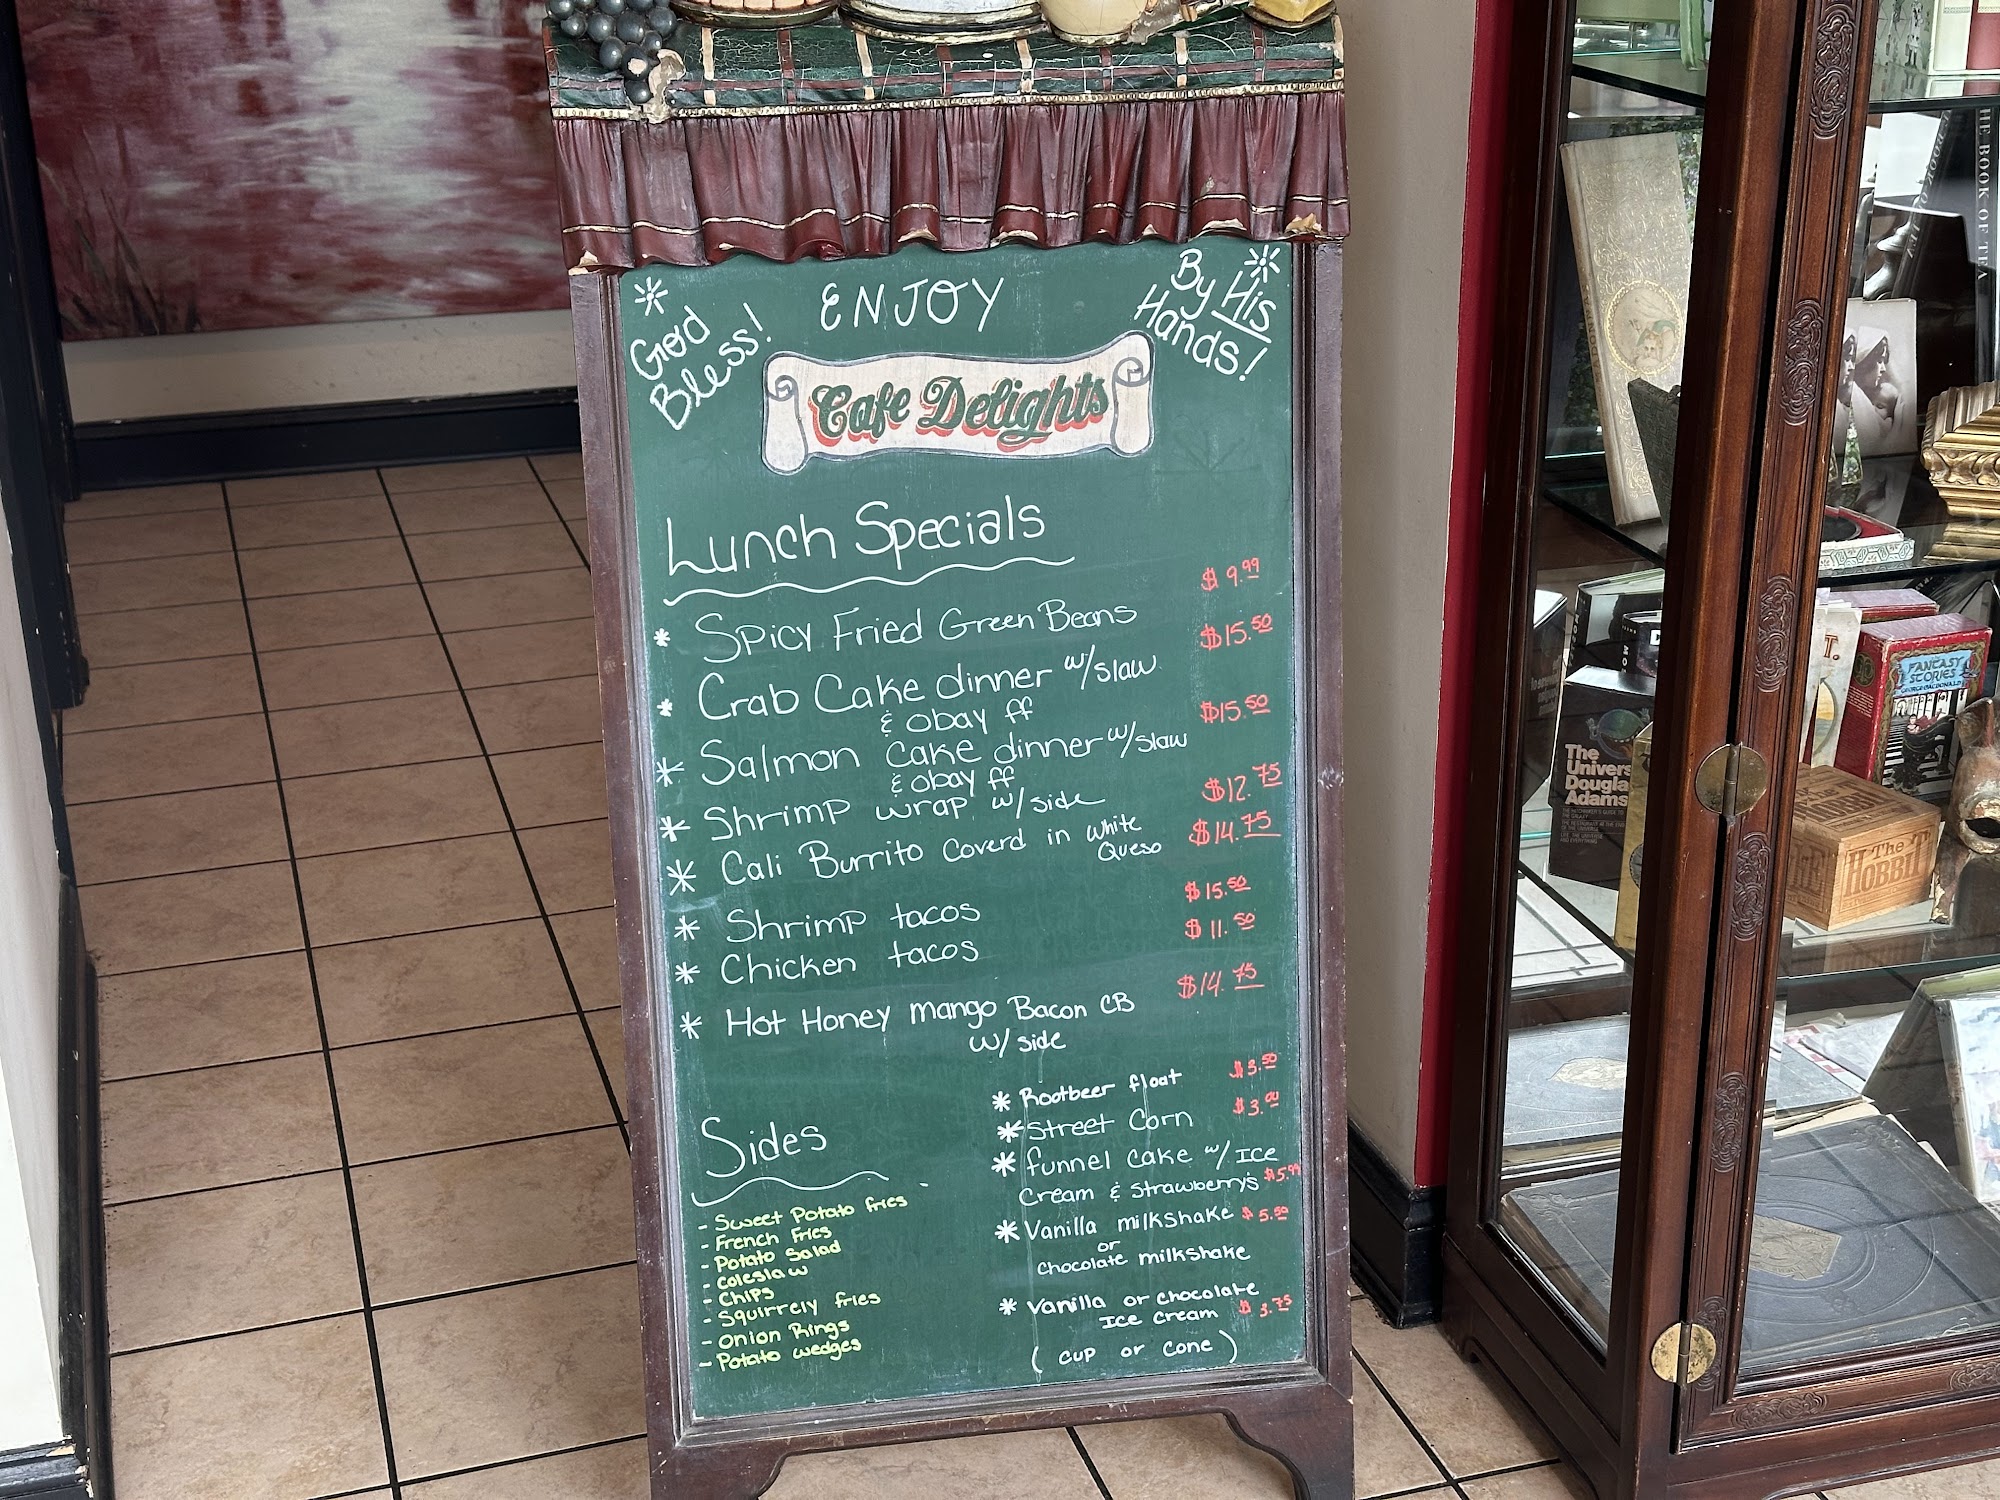 God Bless!
ENJOY
By His Hands!
Cafe Delights
Lunch Specials
* Spicy Fried Green Beans $9.99
* Crab Cake dinner w/slaw $15.50
& obay ff
* Salmon cake dinner w/slaw $15.50
& obay ff
* Shrimp wrap w/side $12.75
* Cali Burrito Coverd in White Queso $14.75
* Shrimp tacos $15.50
* Chicken tacos $11.50
* Hot Honey mango Bacon CB $14.75
w/ side
Sides
- Sweet Potato fries
- French fries
- Potato Salad
- Coleslaw
- Chips
- Squirrely fries
- Onion Rings
- Potato wedges
* Rootbeer float $3.50
* Street Corn $3.00
* funnel cake w/ ICE
Cream & Strawberry's $5.99
* Vanilla milkshake $5.50
or
chocolate milkshake
* Vanilla or chocolate
Ice cream $3.75
(cup or cone)
THE BOOK OF TEA
FANTASY
STORIES
GEORGE MACDONALD
The
Univers
Dougla
Adams
The
HOBBIT